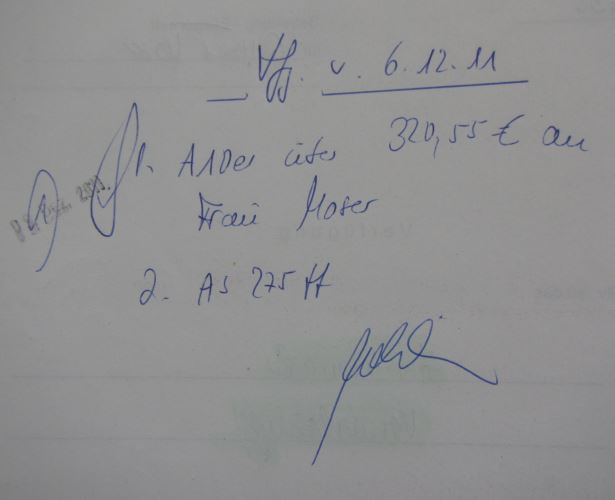 Vfg. v. 6.12.11
1. A10er über 320,55 € an
Frau Moser
2. AS 275 ff
Verfügung